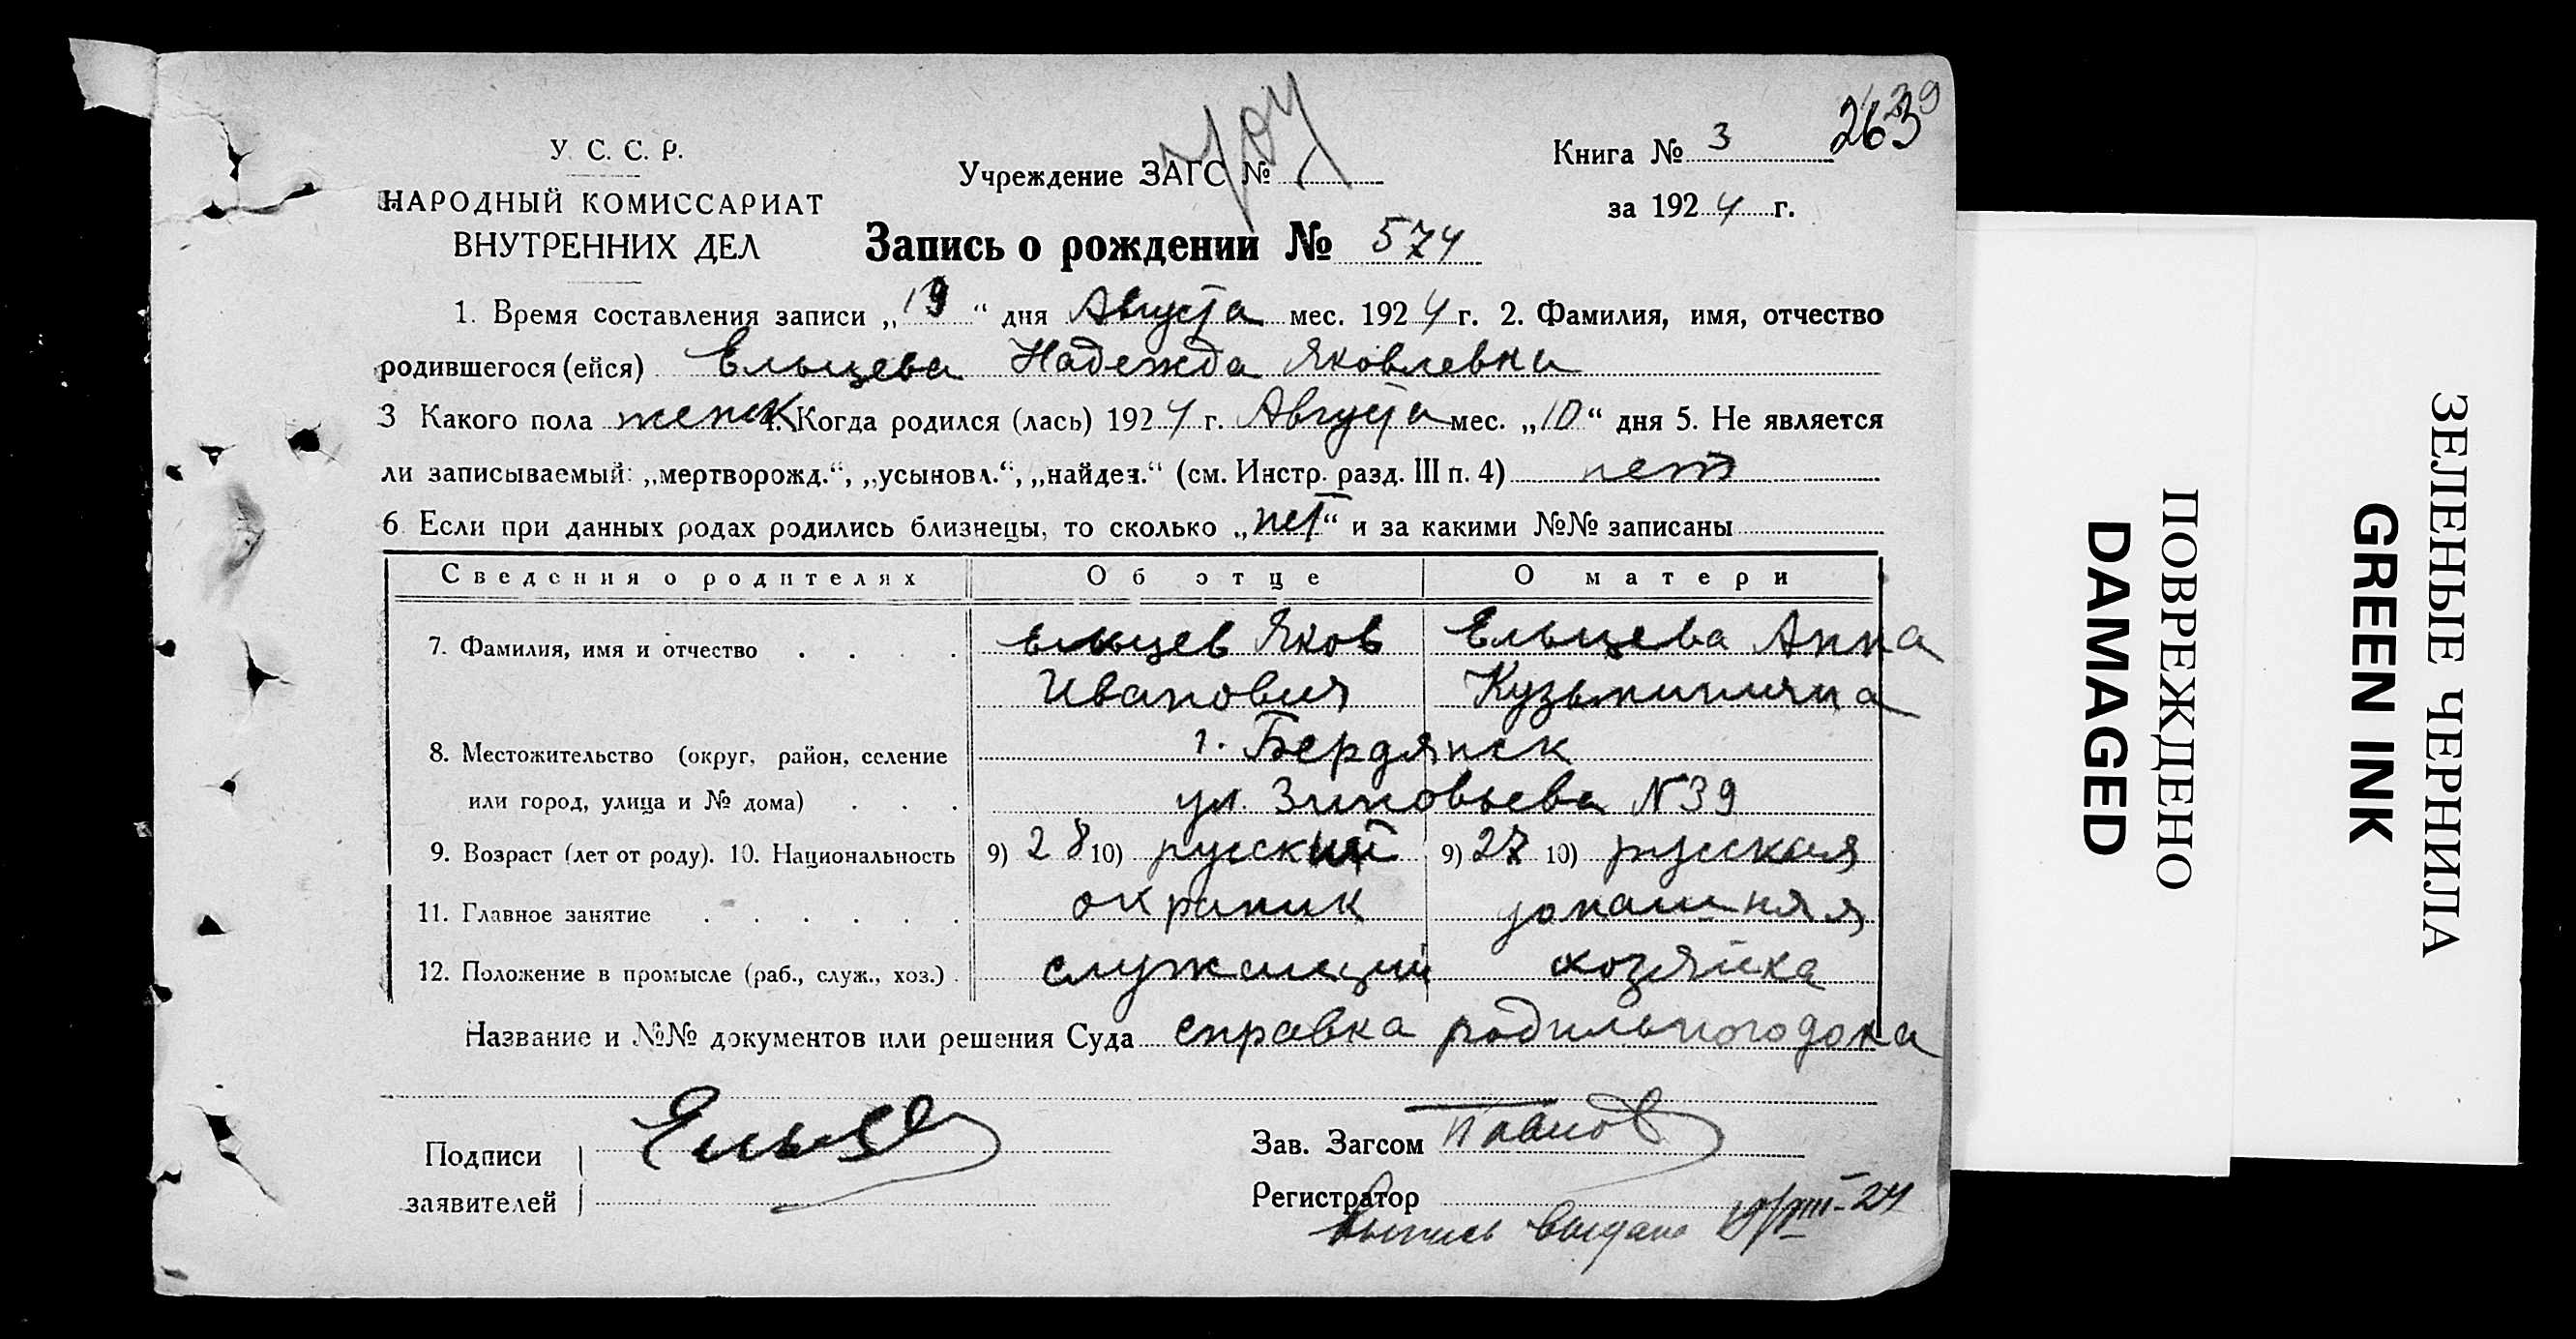 У. С. С. Р.
НАРОДНЫЙ КОМИССАРИАТ
ВНУТРЕННИХ ДЕЛ
Учреждение ЗАГС №
Книга № 3
263
239
за 1924 г.
Запись о рождении № 574
1. Время составления записи „19“ дня Августа мес. 1924 г. 2. Фамилия, имя, отчество
родившегося (ейся) Ельцева Надежда Яковлевна
3 Какого пола женск 4. Когда родился (лась) 1924 г. Августа мес. „10“ дня 5. Не является
ли записываемый: „мертворожд.“, „усыновл.“, „найден.“ (см. Инстр. разд. III п. 4) нет
6. Если при данных родах родились близнецы, то сколько „нет“ и за какими №№ записаны
Сведения о родителях Об отце О матери
7. Фамилия, имя и отчество . . . . Ельцев Яков Ельцева Анна
Иванович Кузьминична
8. Местожительство (округ, район, селение г. Бердянск
или город, улица и № дома) . . . ул. Зиновьева N 39
9. Возраст (лет от роду). 10. Национальность 9) 28 10) русский 9) 27 10) русская
11. Главное занятие . . . . . . охраник домашняя
12. Положение в промысле (раб., служ., хоз.) . служащий хозяйка
Название и №№ документов или решения Суда справка родильного дома
Подписи
заявителей
Зав. Загсом
Регистратор
выпись выдана 19/VIII-24
ПОВРЕЖДЕНО
DAMAGED
ЗЕЛЕНЫЕ ЧЕРНИЛА
GREEN INK